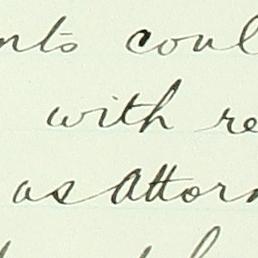 nts coul
with re
as Attorn